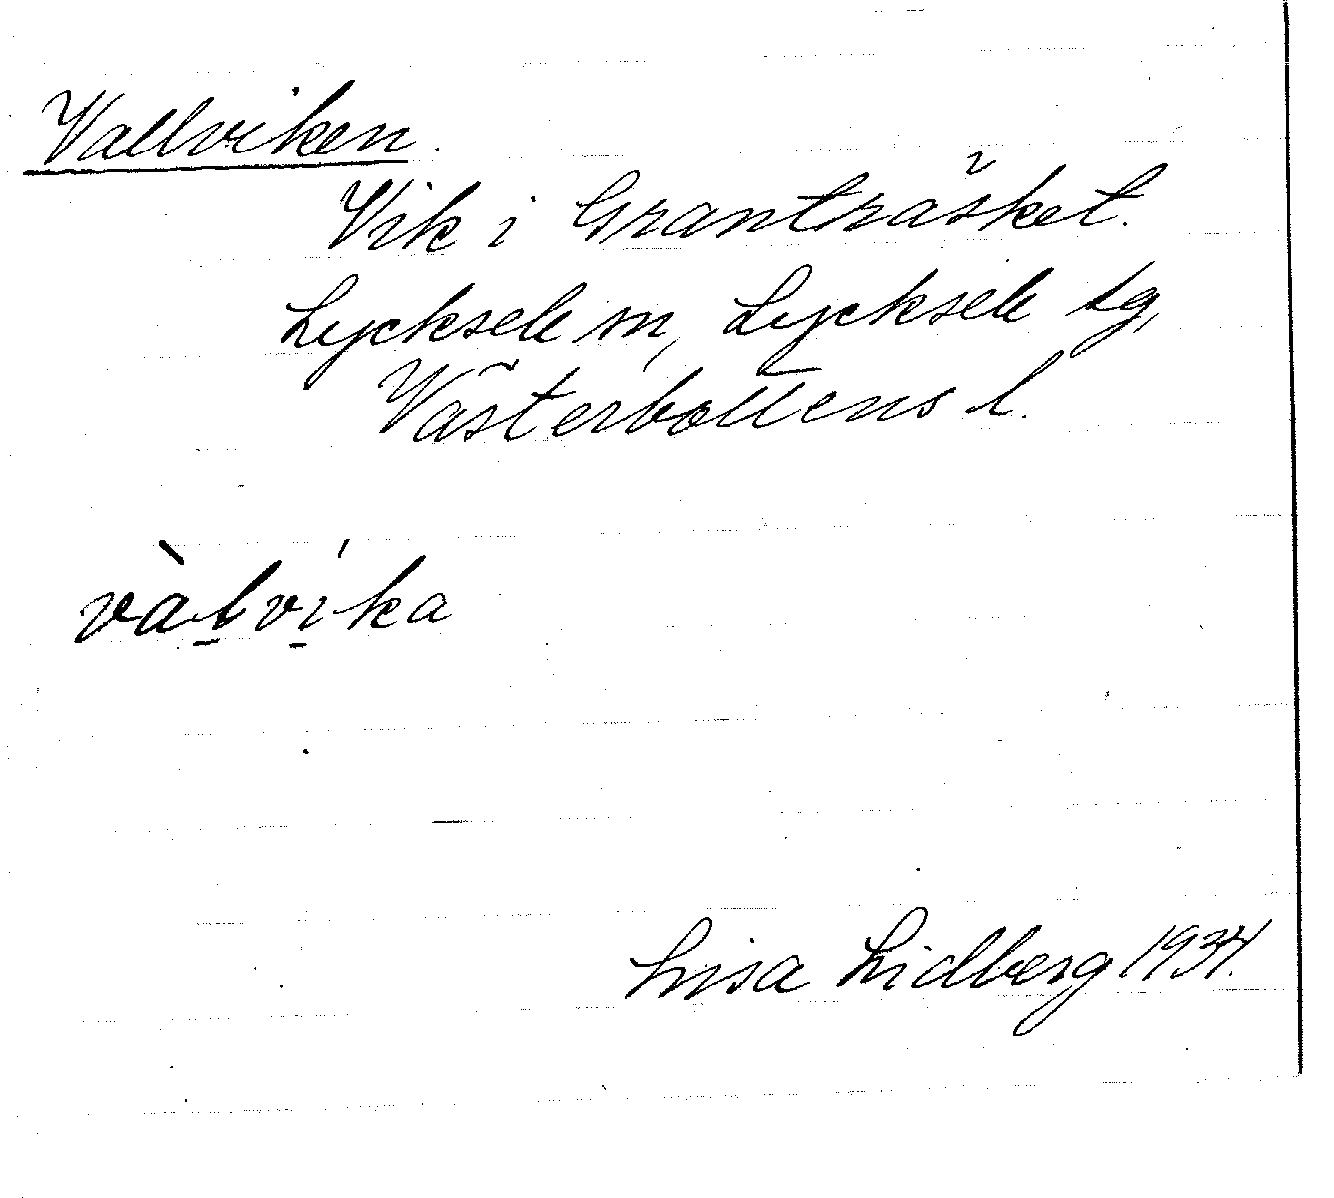 Vallviken.
Vik i Granträsket.
Lycksele sn, Lycksele tg,
Västerbottens l.
vàl̠ví̠ka
Lisa Lidberg 1934.